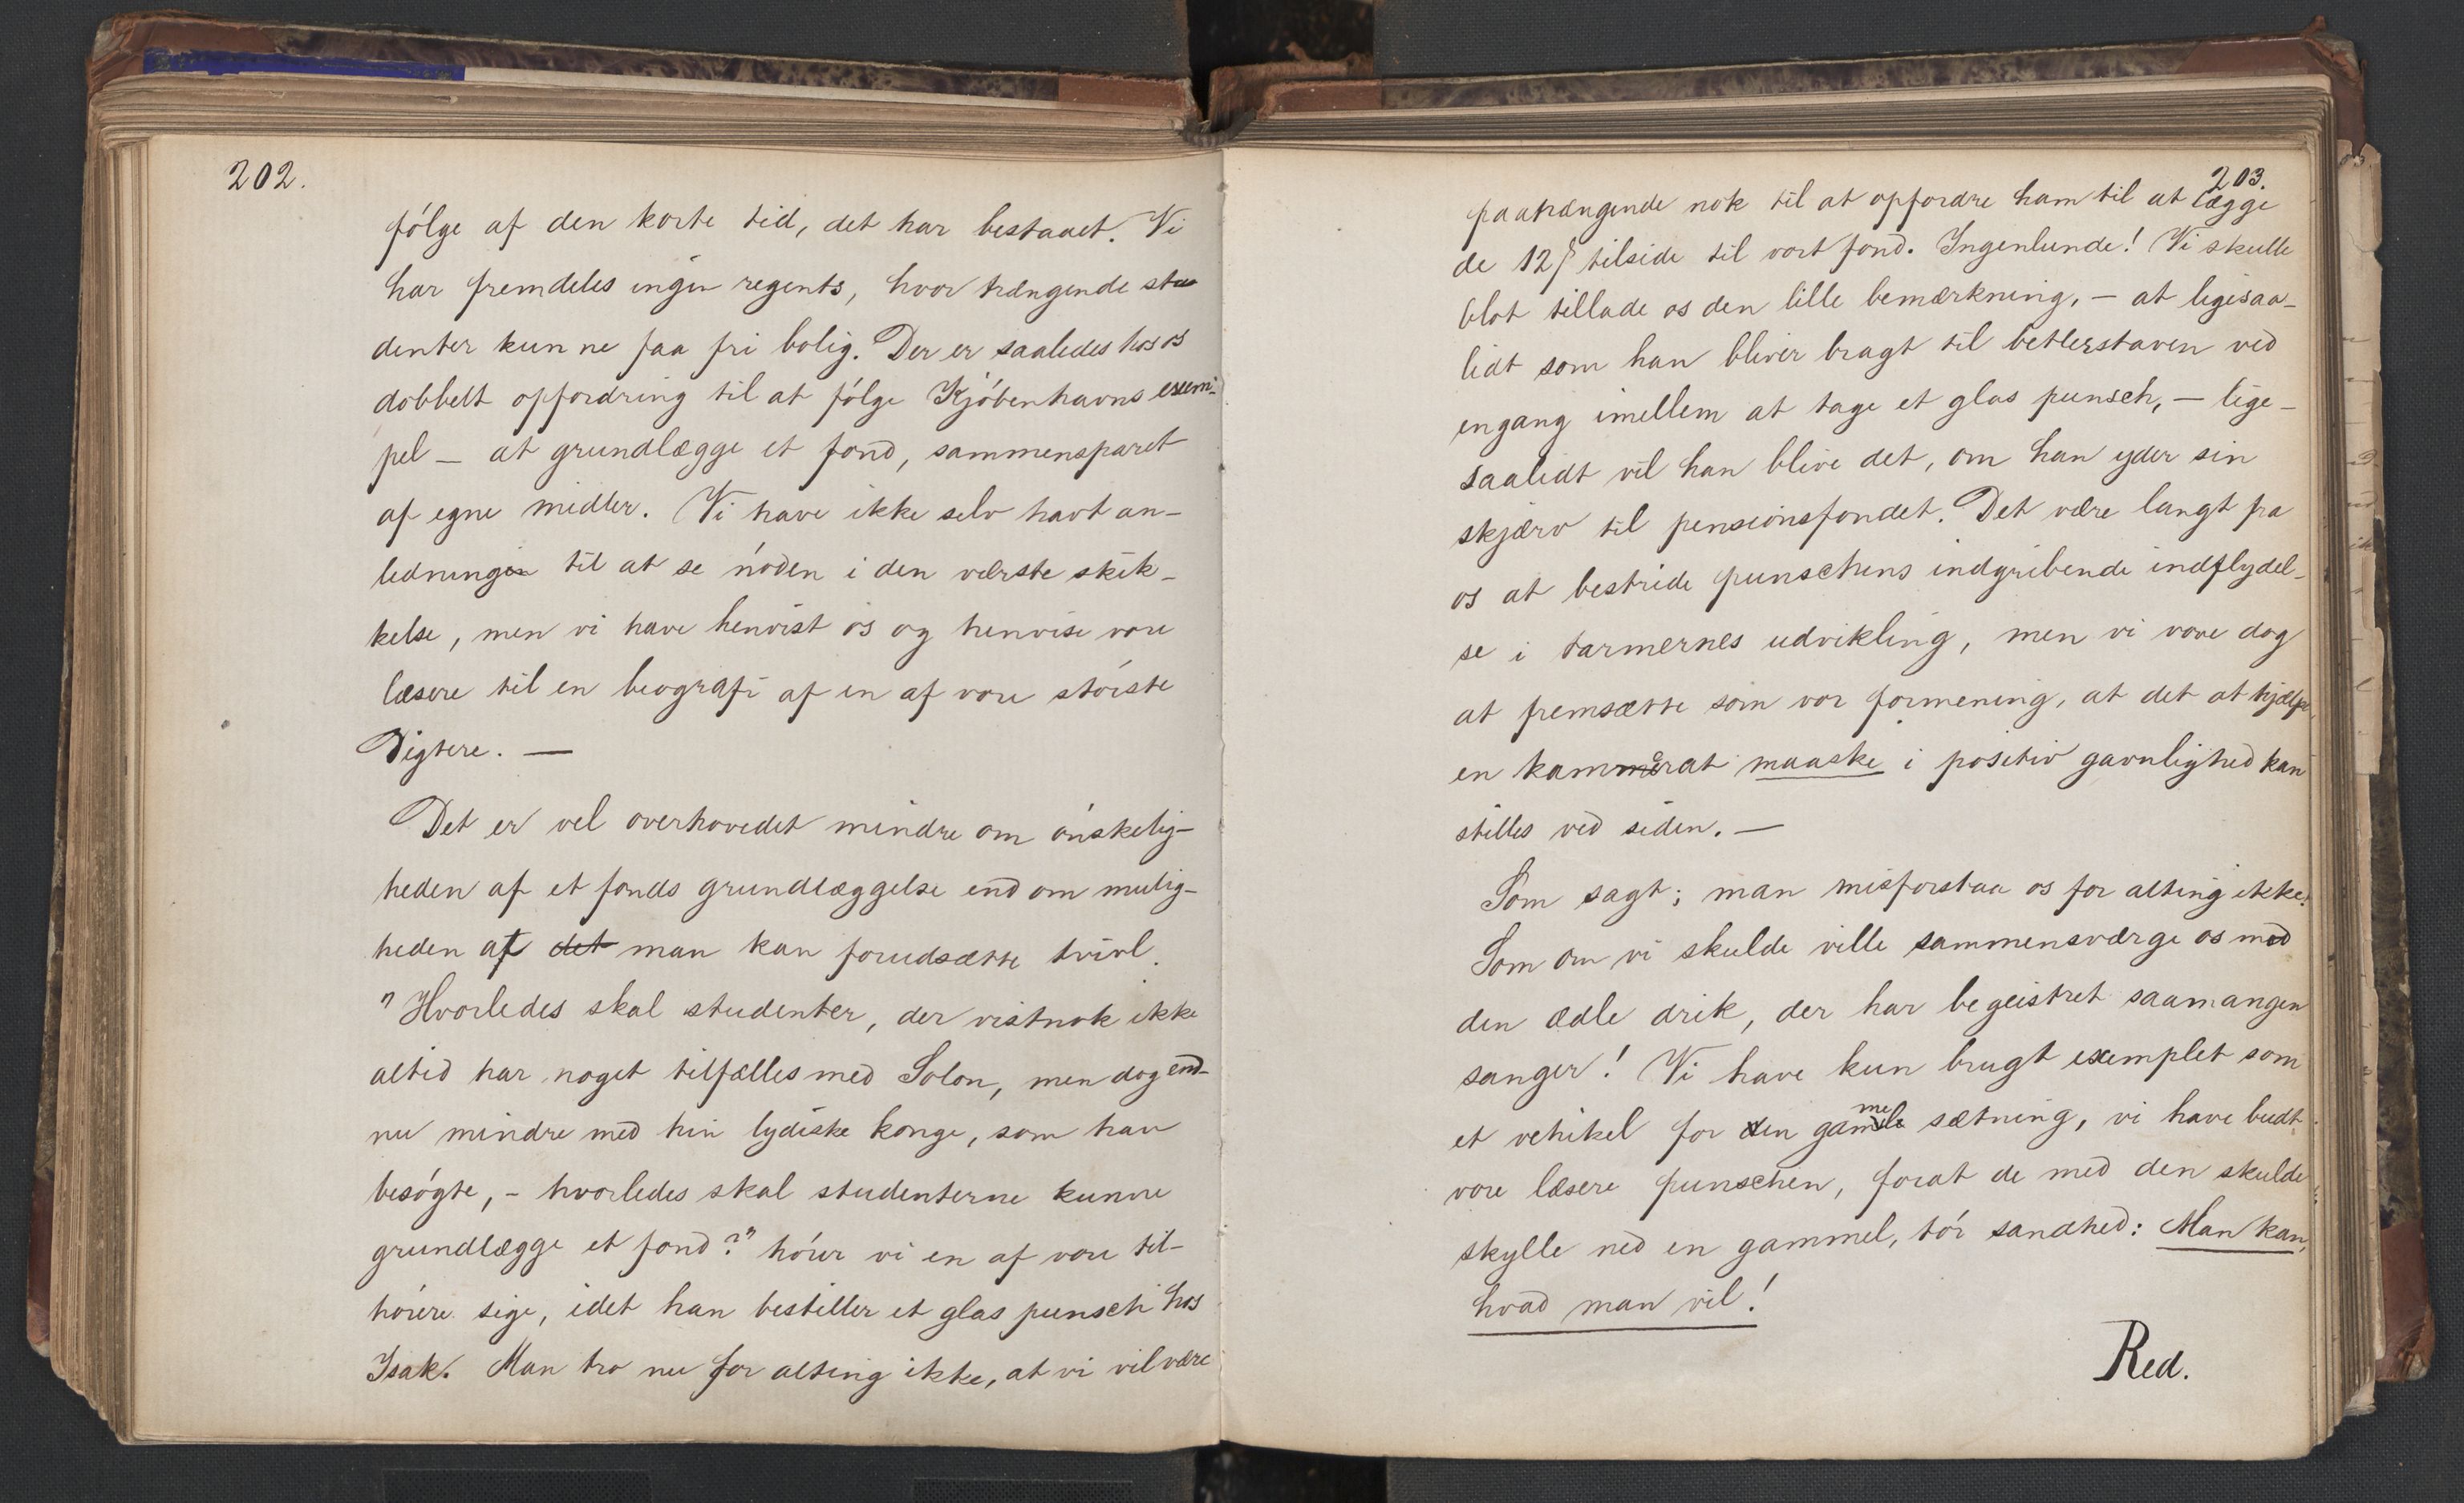 202.
følge af den korte tid, det har bestaaet. Vi
har fremdeles ingen regents, hvor trængende stu
denter kunne faa fri bolig. Der er saaledes hos os
dobbelt opfordring til at følge Kjøbenhavns exem-
pel – at grundlægge et fond, sammensparet
af egne midler. Vi have ikke selv havt an-
ledningen til at se nøden i den værste skik-
kelse, men vi have henvist os og henvise vore
læsere til en biografi af en af vore største
Digtere. —
Det er vel overhovedet mindre om ønskelig-
heden af et fonds grundlæggelse end om mulig-
heden af det man kan forudsætte tvivl.
"Hvorledes skal studenter, der vistnok ikke
altid har noget tilfælles med Solon, men dog end-
nu mindre med hin lydiske konge, som han
besøgte, – hvorledes skal studenterne kunne
grundlægge et fond?" hører vi en af vore til-
hørere sige, idet han bestiller et glas punsch hos
Isak. Man tro nu for alting ikke, at vi vil være
203.
paatrængende nok til at opfordre ham til at lægge
de 12 ß tilside til vort fond. Ingenlunde! Vi skulle
blot tillade os den lille bemærkning, – at ligesaa-
lidt som han bliver bragt til betlerstaven ved
engang imellem at tage et glas punsch, – lige-
saalidt vil han blive det, om han yder sin
skjærv til pensionsfondet. Det være langt fra
os at bestride punschens indgribende indflydel-
se i tarmernes udvikling, men vi vove dog
at fremsætte som vor formening, at det at hjælpe
en kammerat maaske i positiv gavnlighed kan
stilles ved siden. —
Som sagt; man misforstaa os for alting ikke!
Som om vi skulde ville sammensværge os mod
den ædle drik, der har begeistret saamangen
sanger! Vi have kun brugt exemplet som
et vehikel for den gamle sætning, vi have budt
vore læsere punschen, forat de med den skulde
skylle ned en gammel, tør sandhed: Man kan,
hvad man vil!
Red.